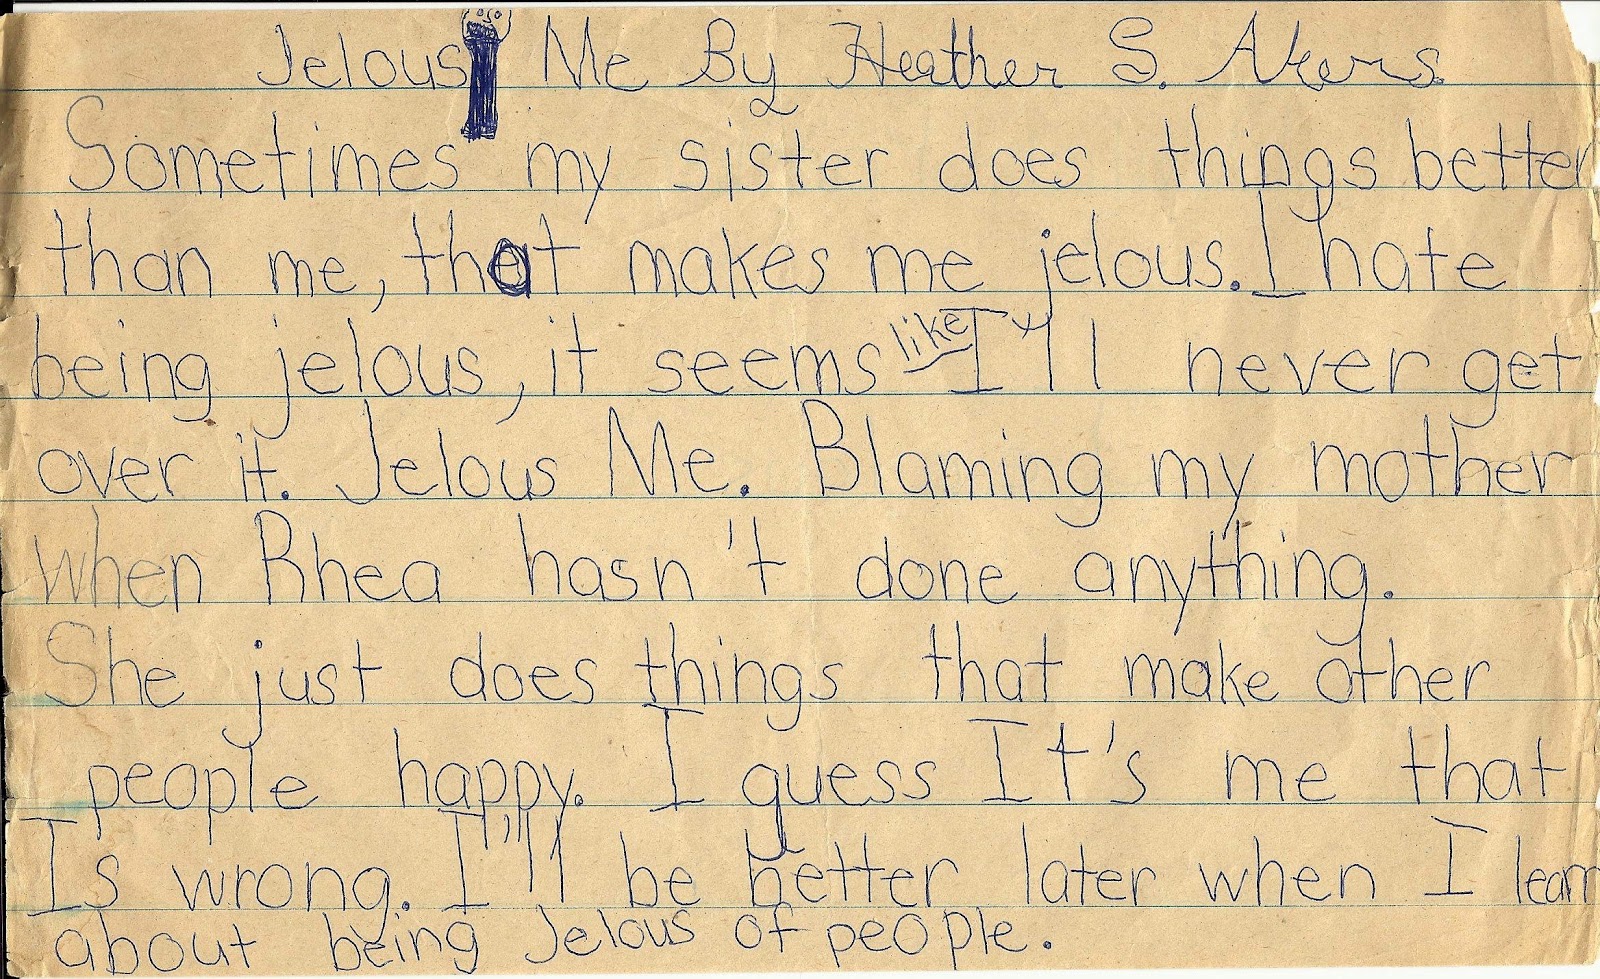 Jelous Me By Heather S. Akers
Sometimes my sister does things better
than me, that makes me jelous. I hate
being jelous, it seems like I'll never get
over it. Jelous Me. Blaming my mother
when Rhea hasn't done anything.
She just does things that make other
people happy. I guess It's me that
Is wrong. I'll be better later when I learn
about being Jelous of people.